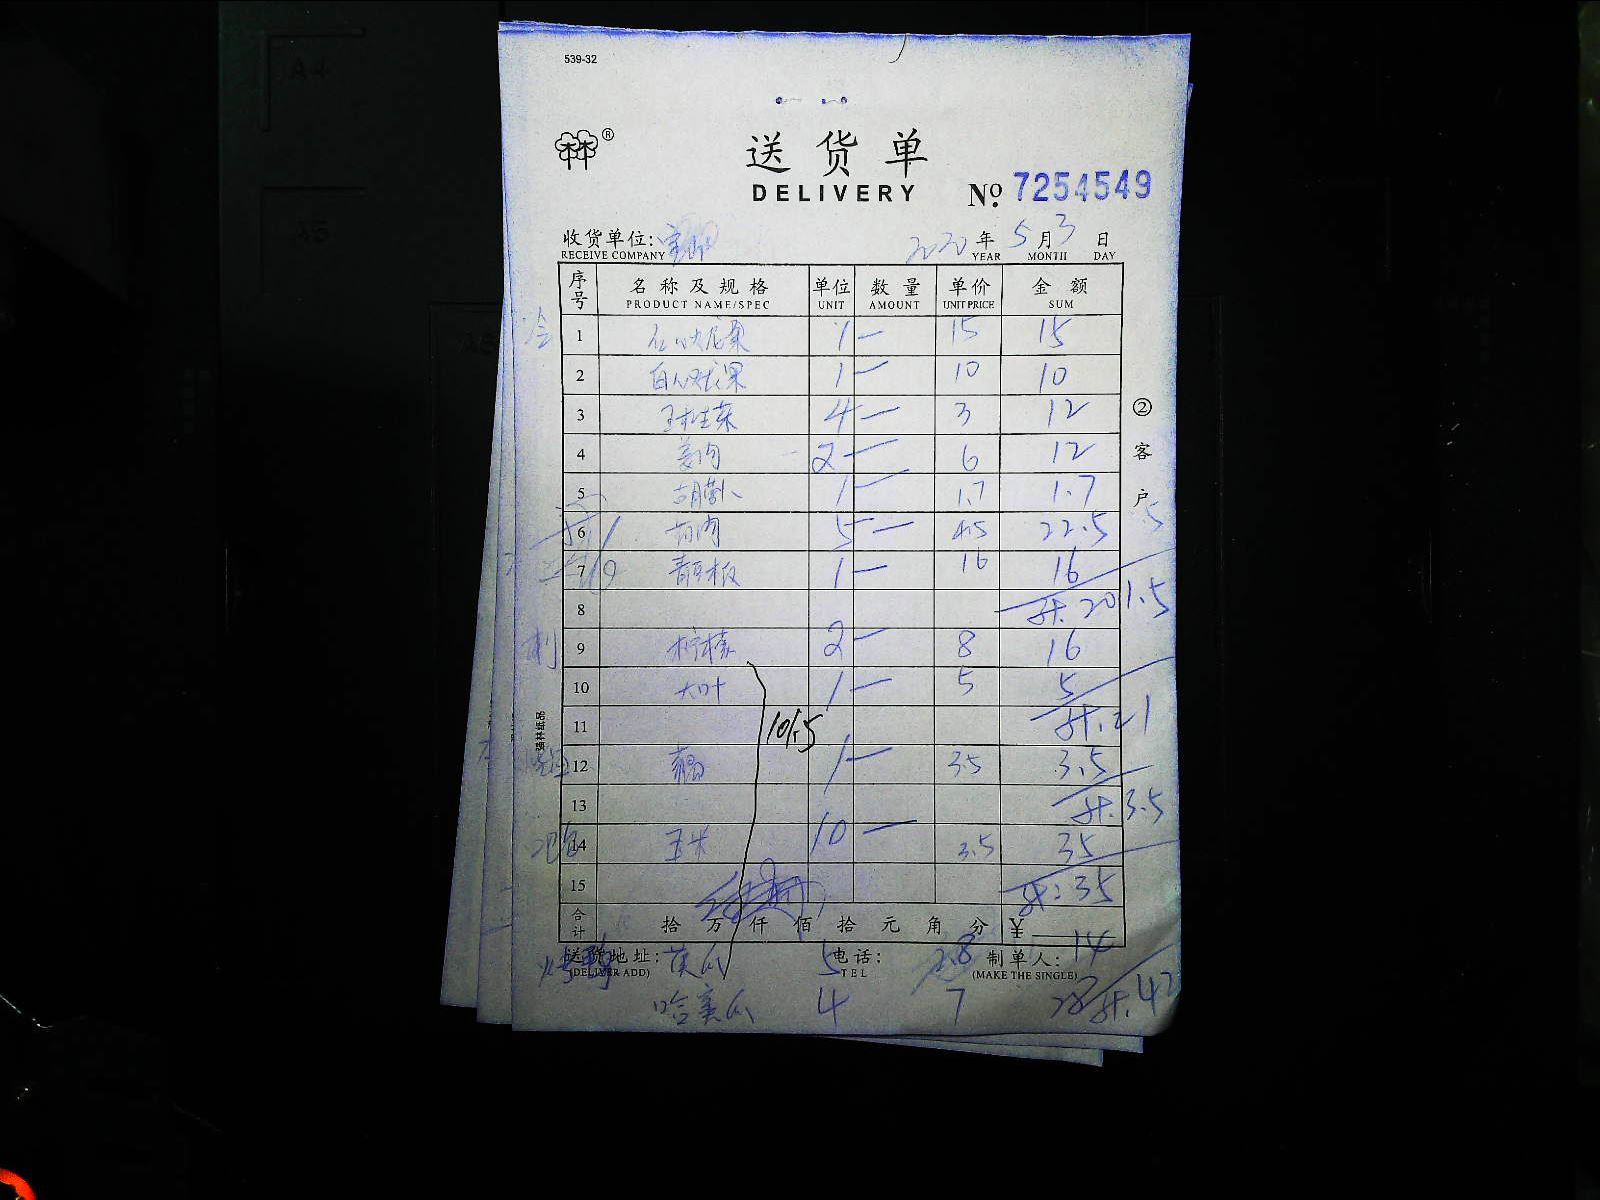 539-32
林®
送货单
DELIVERY № 7254549
收货单位: 2020年 5月 3日
RECEIVE COMPANY YEAR MONTH DAY
序号 名称及规格 单位 数量 单价 金额
PRODUCT NAME/SPEC UNIT AMOUNT UNIT PRICE SUM
冷 1 红心火龙果 1 — 15 15
2 白心火龙果 1 — 10 10
3 4 — 3 12
4 姜肉 2 — 6 12
5 胡萝卜 1 — 1.7 1.7
6 5 — 4.5 22.5
7 1 — 16 16
8 计.201.5
9 柠檬 2 — 8 16
10 大叶 1 — 5 5
11 计.21
101.5
12 1 — 3.5 3.5
13 计.3.5
14 玉米 10 — 3.5 35
15 计:35
合计 拾 万 仟 佰 拾 元 角 分 ¥
②客户
强林纸品
送货地址: 电话: 制单人:
(DELIVER ADD) TEL (MAKE THE SINGLE)
黄瓜 5 2.8 14
哈蜜瓜 4 7 28 计.42